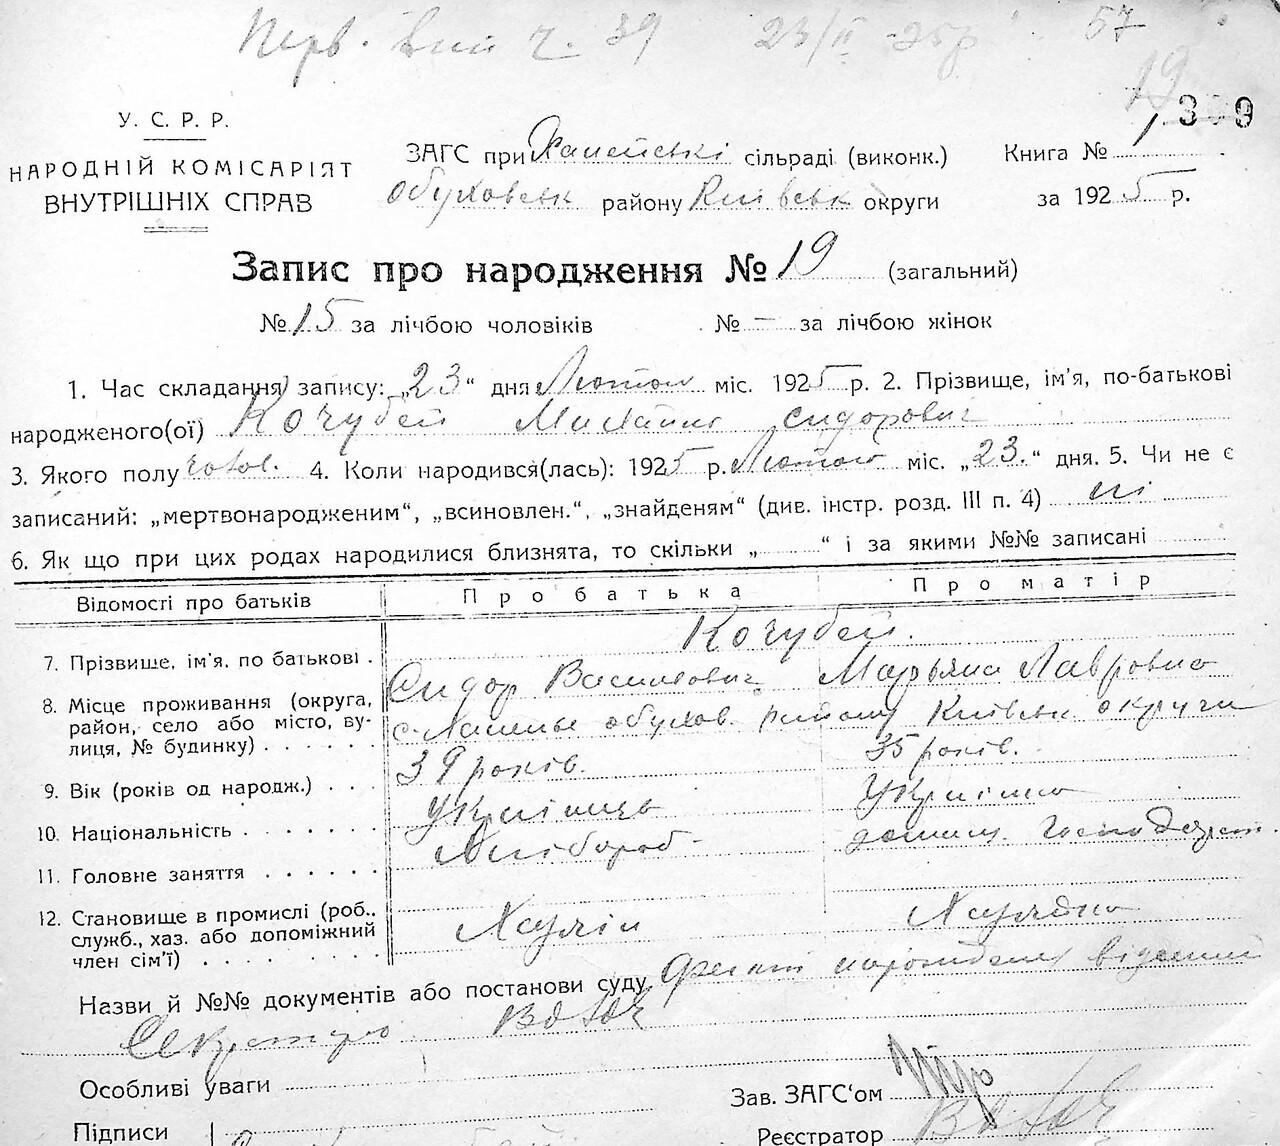 Перв. вип ч. 39 23/II 25р 57
19
339
У. С. Р. Р.
НАРОДНІЙ КОМІСАРІЯТ
ВНУТРІШНІХ СПРАВ
ЗАГС при сільраді (виконк.) Книга № 1
Обуховськ району Київськ округи за 1925 р.
Запис про народження № 19 (загальний)
№ 15 за лічбою чоловіків № — за лічбою жінок
1. Час складання запису: „23“ дня Лютого міс. 1925 р. 2. Прізвище, ім'я, по-батькові
народженого(ої) Кочубей Михайло Сидорович
3. Якого полу чолов. 4. Коли народився(лась): 1925 р. Лютого міс. „23.“ дня. 5. Чи не є
записаний: „мертвонародженим“, „всиновлен.“, „знайденям“ (див. інстр. розд. III п. 4) ні
6. Як що при цих родах народилися близнята, то скільки „ “ і за якими №№ записані
Відомості про батьків Про батька Про матір
7. Прізвише, ім'я, по батькові . Кочубей.
Сидор Василович Марьяна Лавровна
8. Місце проживання (округа, район, село або місто, вулиця, № будинку) . . . . . . с. обухов. району Київськ округи
9. Вік (років од народж.) . . . 39 років. 35 років.
10. Національність . . . . . . . Українець Українка
11. Головне заняття . . . . . . Хлібороб домашн. господарст.
12. Становище в промислі (роб., служб., хаз. або допоміжний член сім'ї) . . . . . . . . Хазяїн Хазяйка
Назви й №№ документів або постанови суду Факт народження відомий
Секретарю
Особливі уваги
Зав. ЗАГС'ом
Підписи
Реєстратор